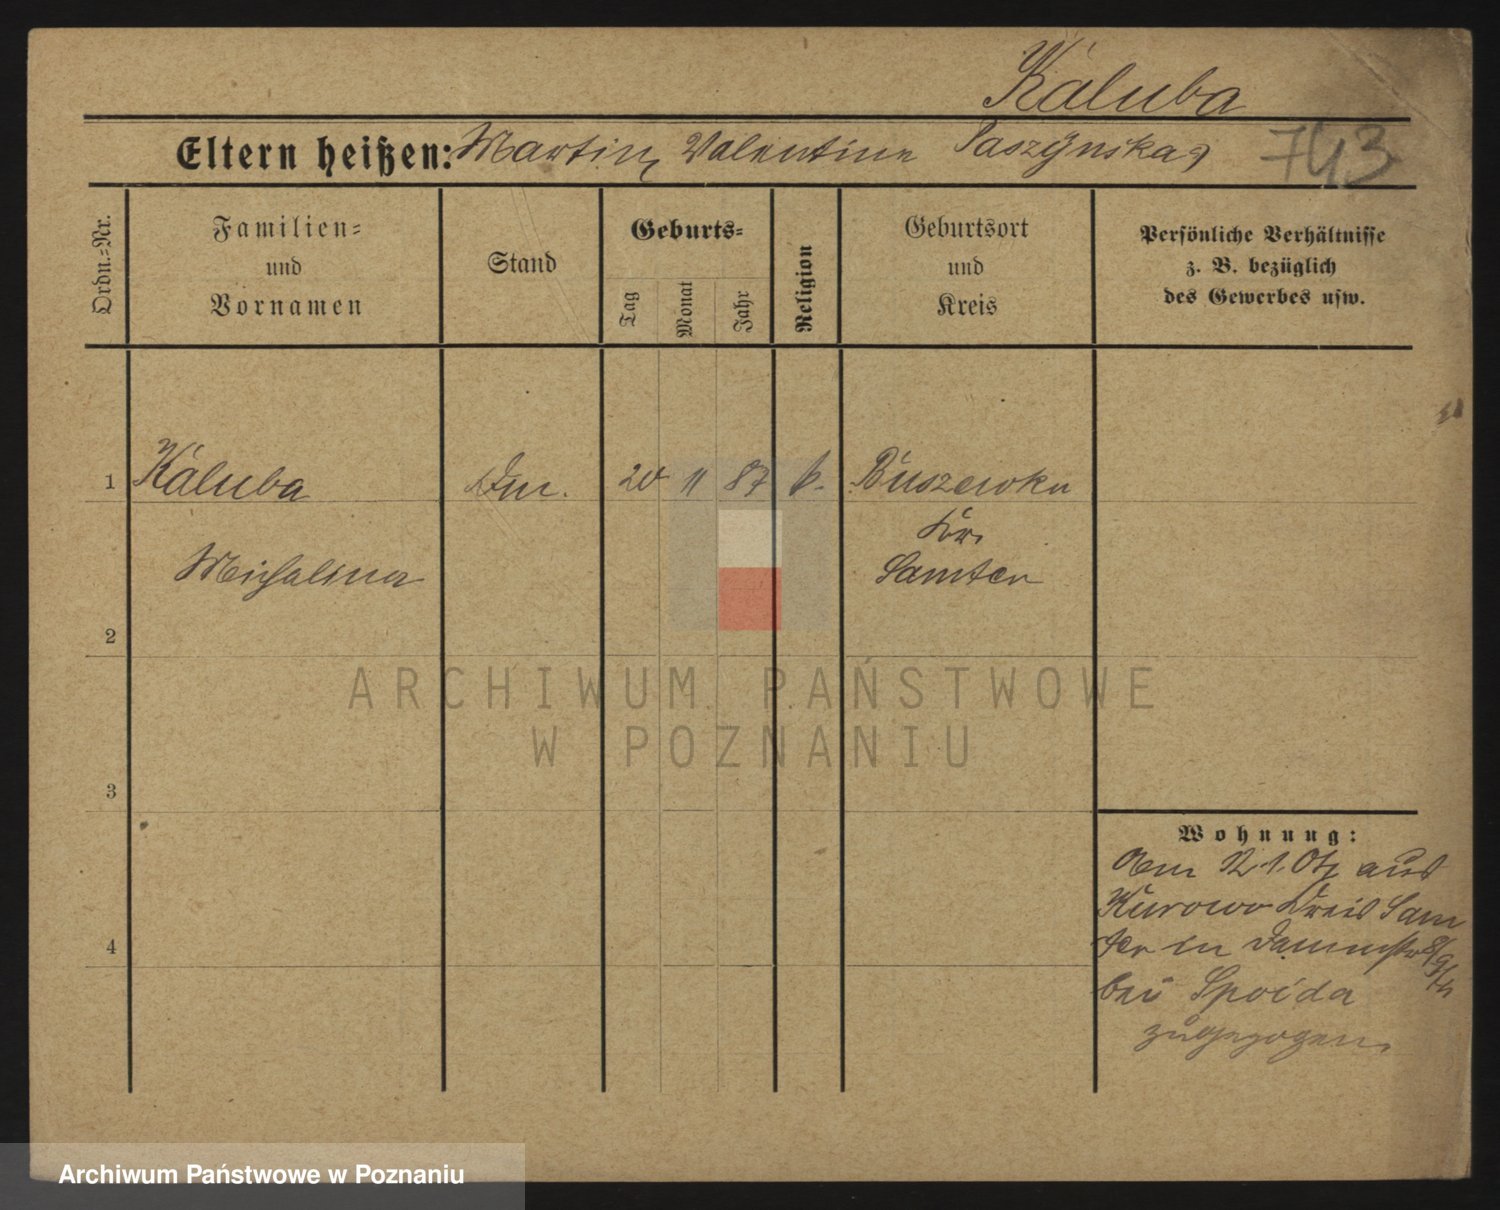 Kaluba
Eltern heißen: Martin, Valentine Paszÿnska
743
Ordn.-Nr.
Familien-
und
Vornamen
Stand
Geburts-
Tag
Monat
Jahr
Religion
Geburtsort
und
Kreis
Persönliche Verhältnisse
z. B. bezüglich
des Gewerbes usw.
1 Kaluba 20 11 87 k. Buszewko
Kr.
Michalina Samter
2
3
4
Wohnung:
Am 12 1. 07 aus
Kurowo Kreis Sam
ter in Dammstr
bei Spoida
zugezogen.
ARCHIWUM PAŃSTWOWE
W POZNANIU
Archiwum Państwowe w Poznaniu